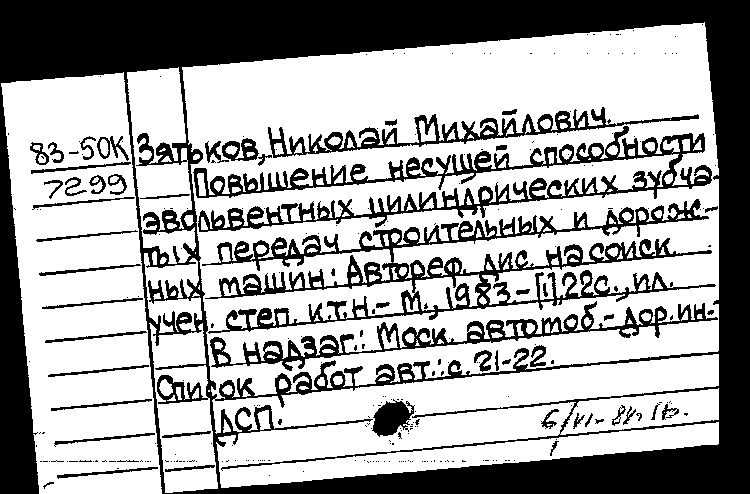 83-50К Зятьков, Николай Михайлович.
7299 Повышение несущей способности
эвольвентных цилиндрических зубча-
тых передач строительных и дорож-
ных машин: Автореф. дис. на соиск.
учен. степ. к.т.н. - М., 1983. - [1], 22с., ил.
В надзаг.: Моск. автомоб.-дор. ин-т
Список работ авт.: с. 21-22.
ДСП.